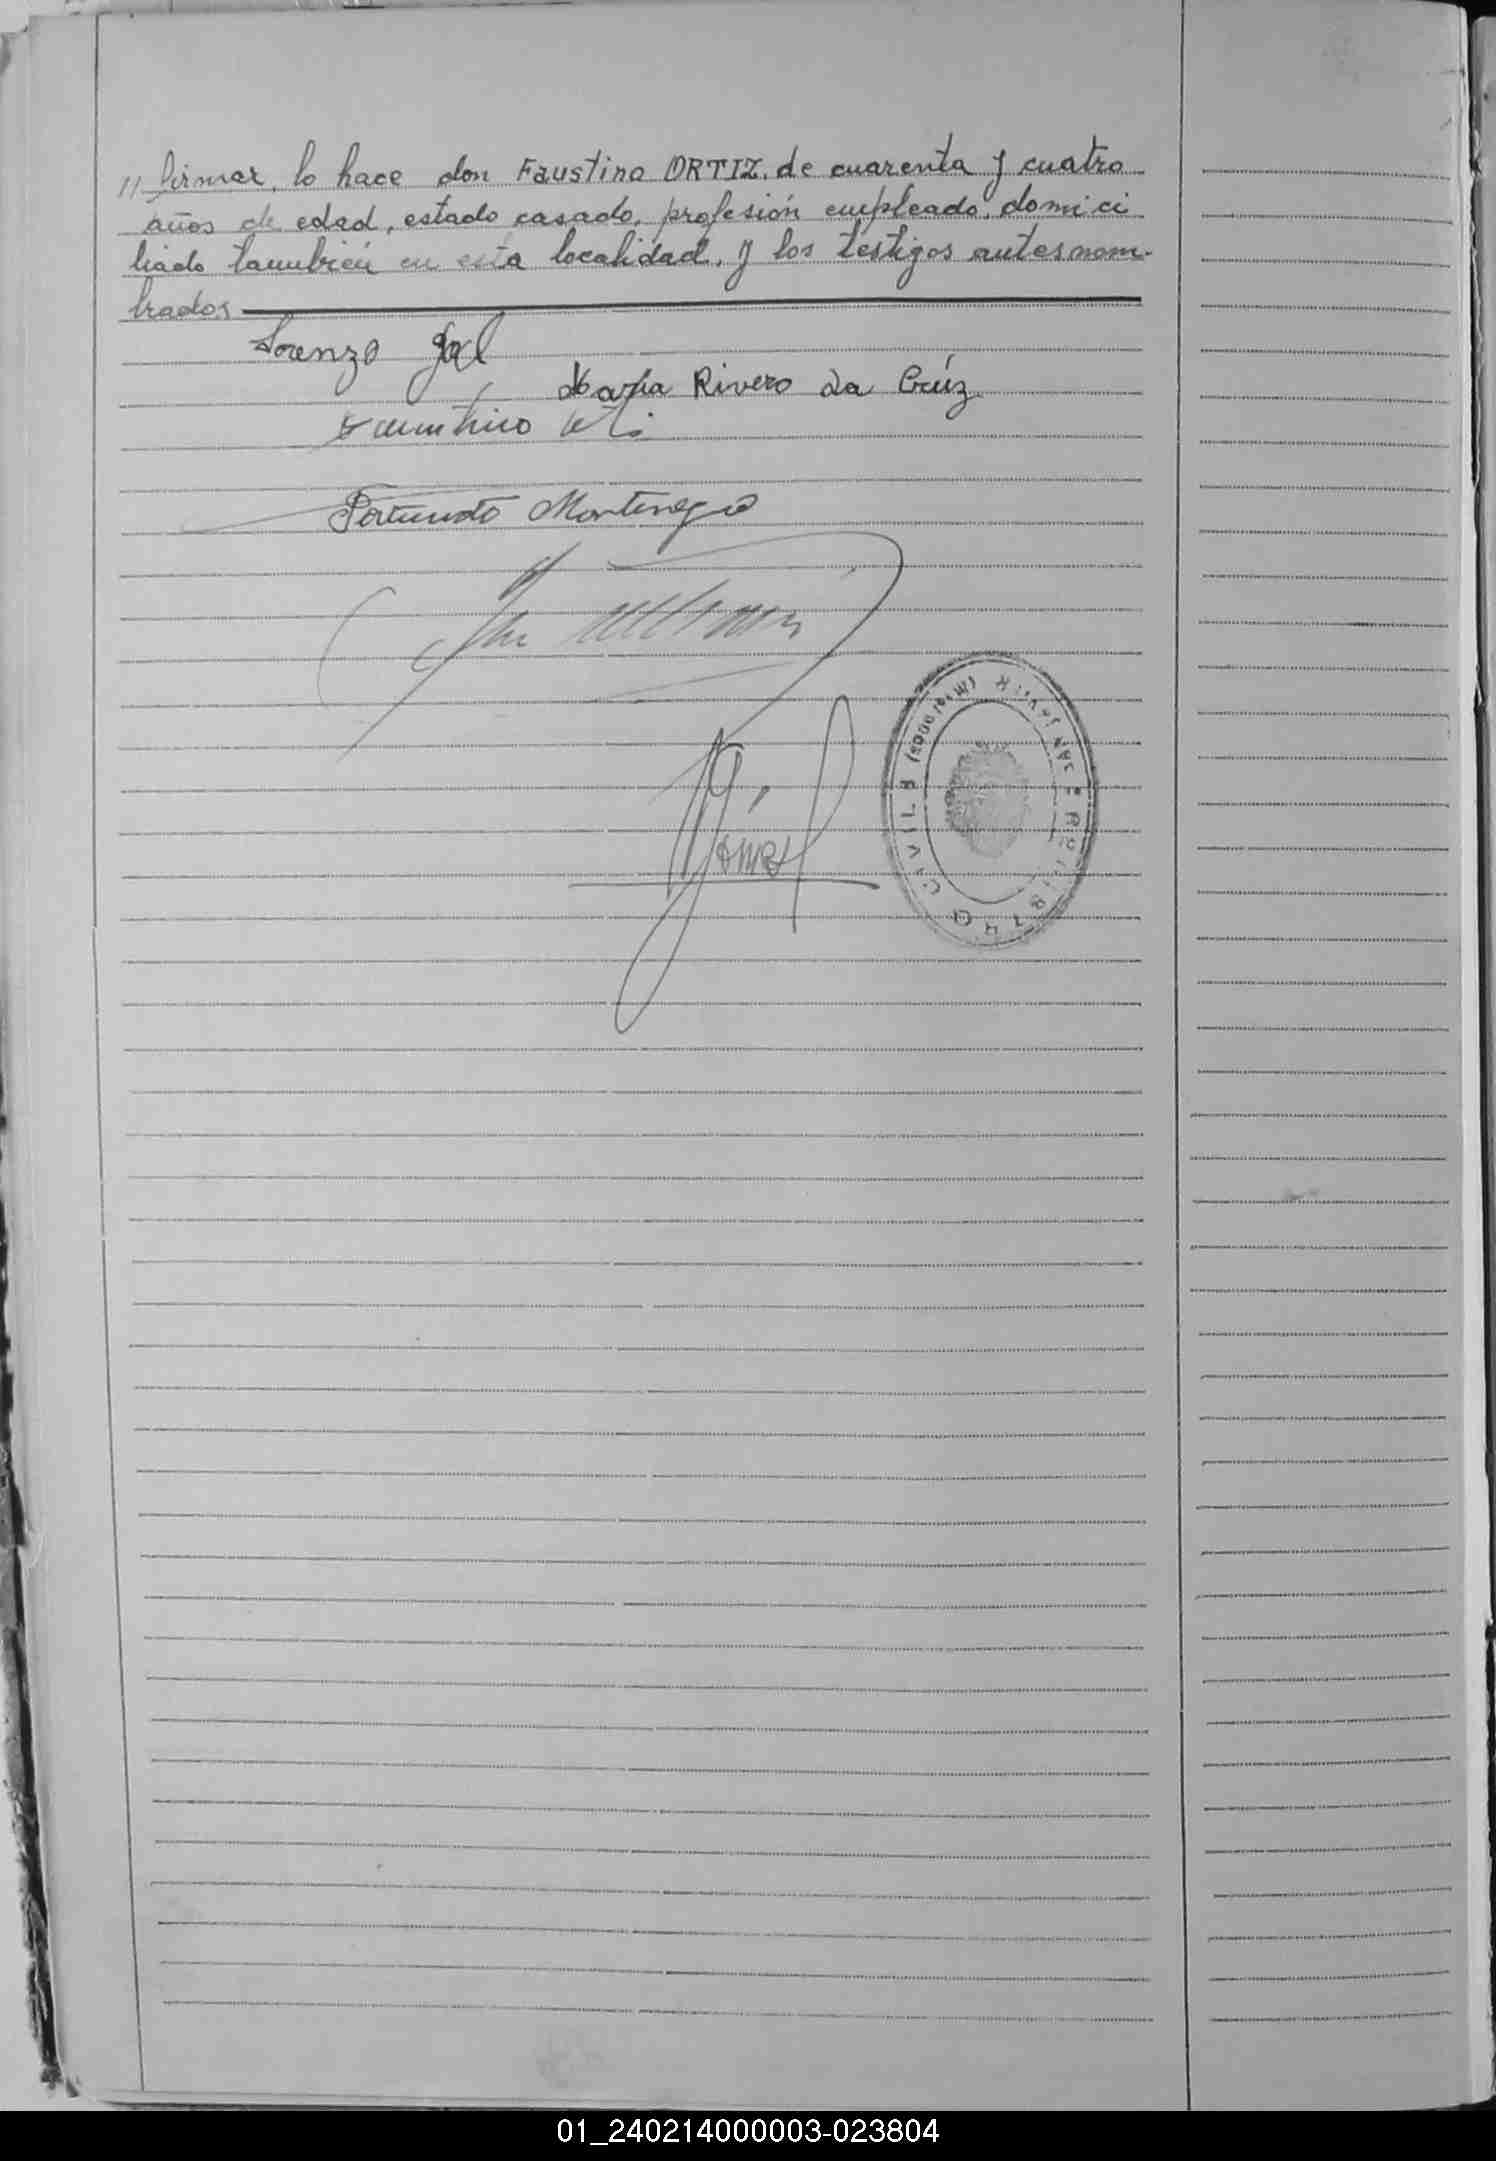 // firmar, lo hace don Faustino ORTIZ, de cuarenta y cuatro
años de edad, estado casado, profesión empleado, domici
liado también en esta localidad, y los testigos antes nom-
brados
Lorenzo
Maria Rivero La Crúz
Montenegro
Gómez
CIVIL
01_240214000003-023804